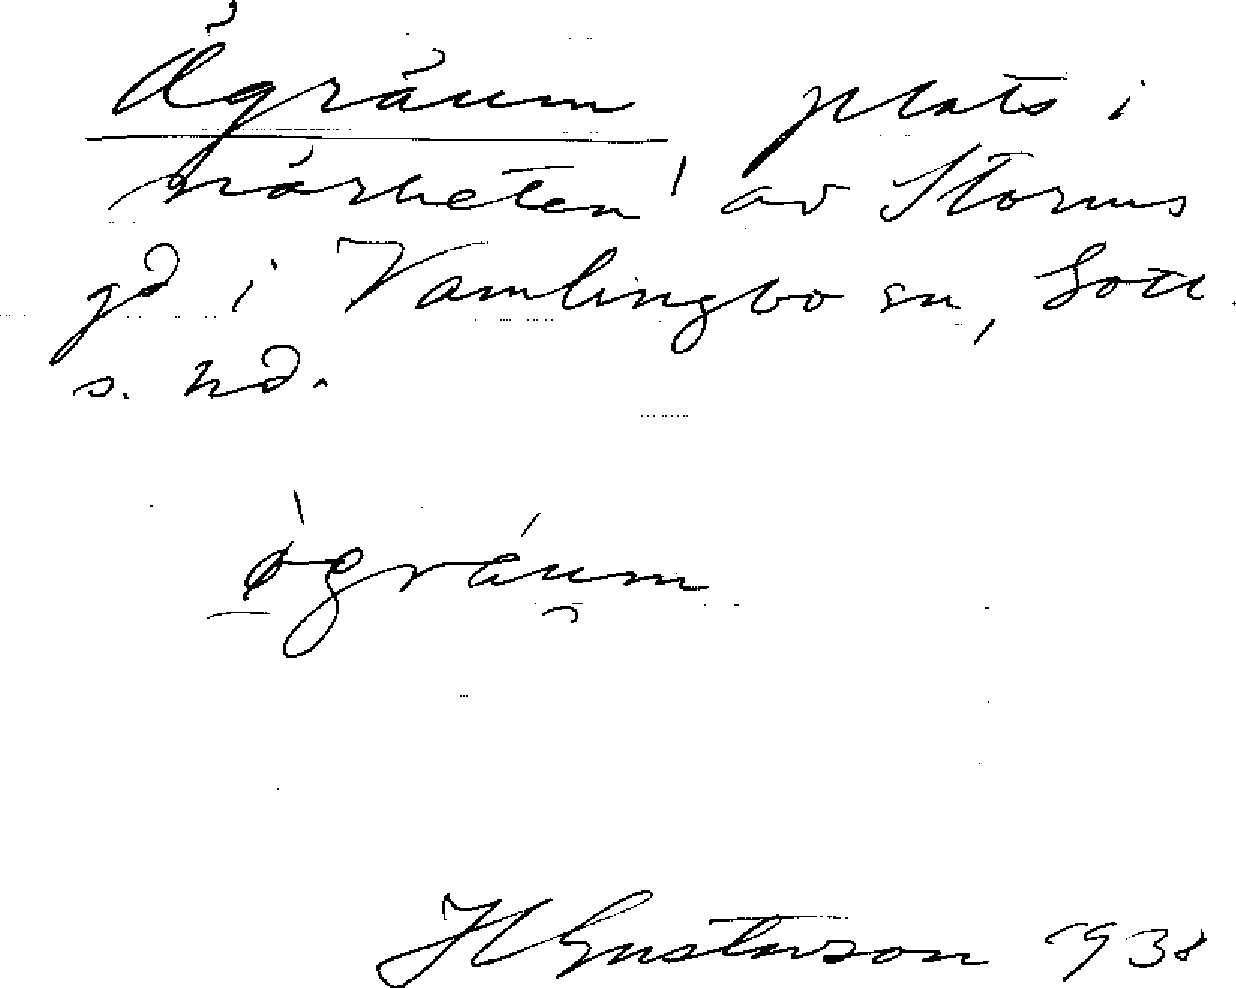 Ågräum plats i
närheten av Storms
gd i Vamlingbo sn, Gotl
s. hd.
ògráum
H Gustavson 1938